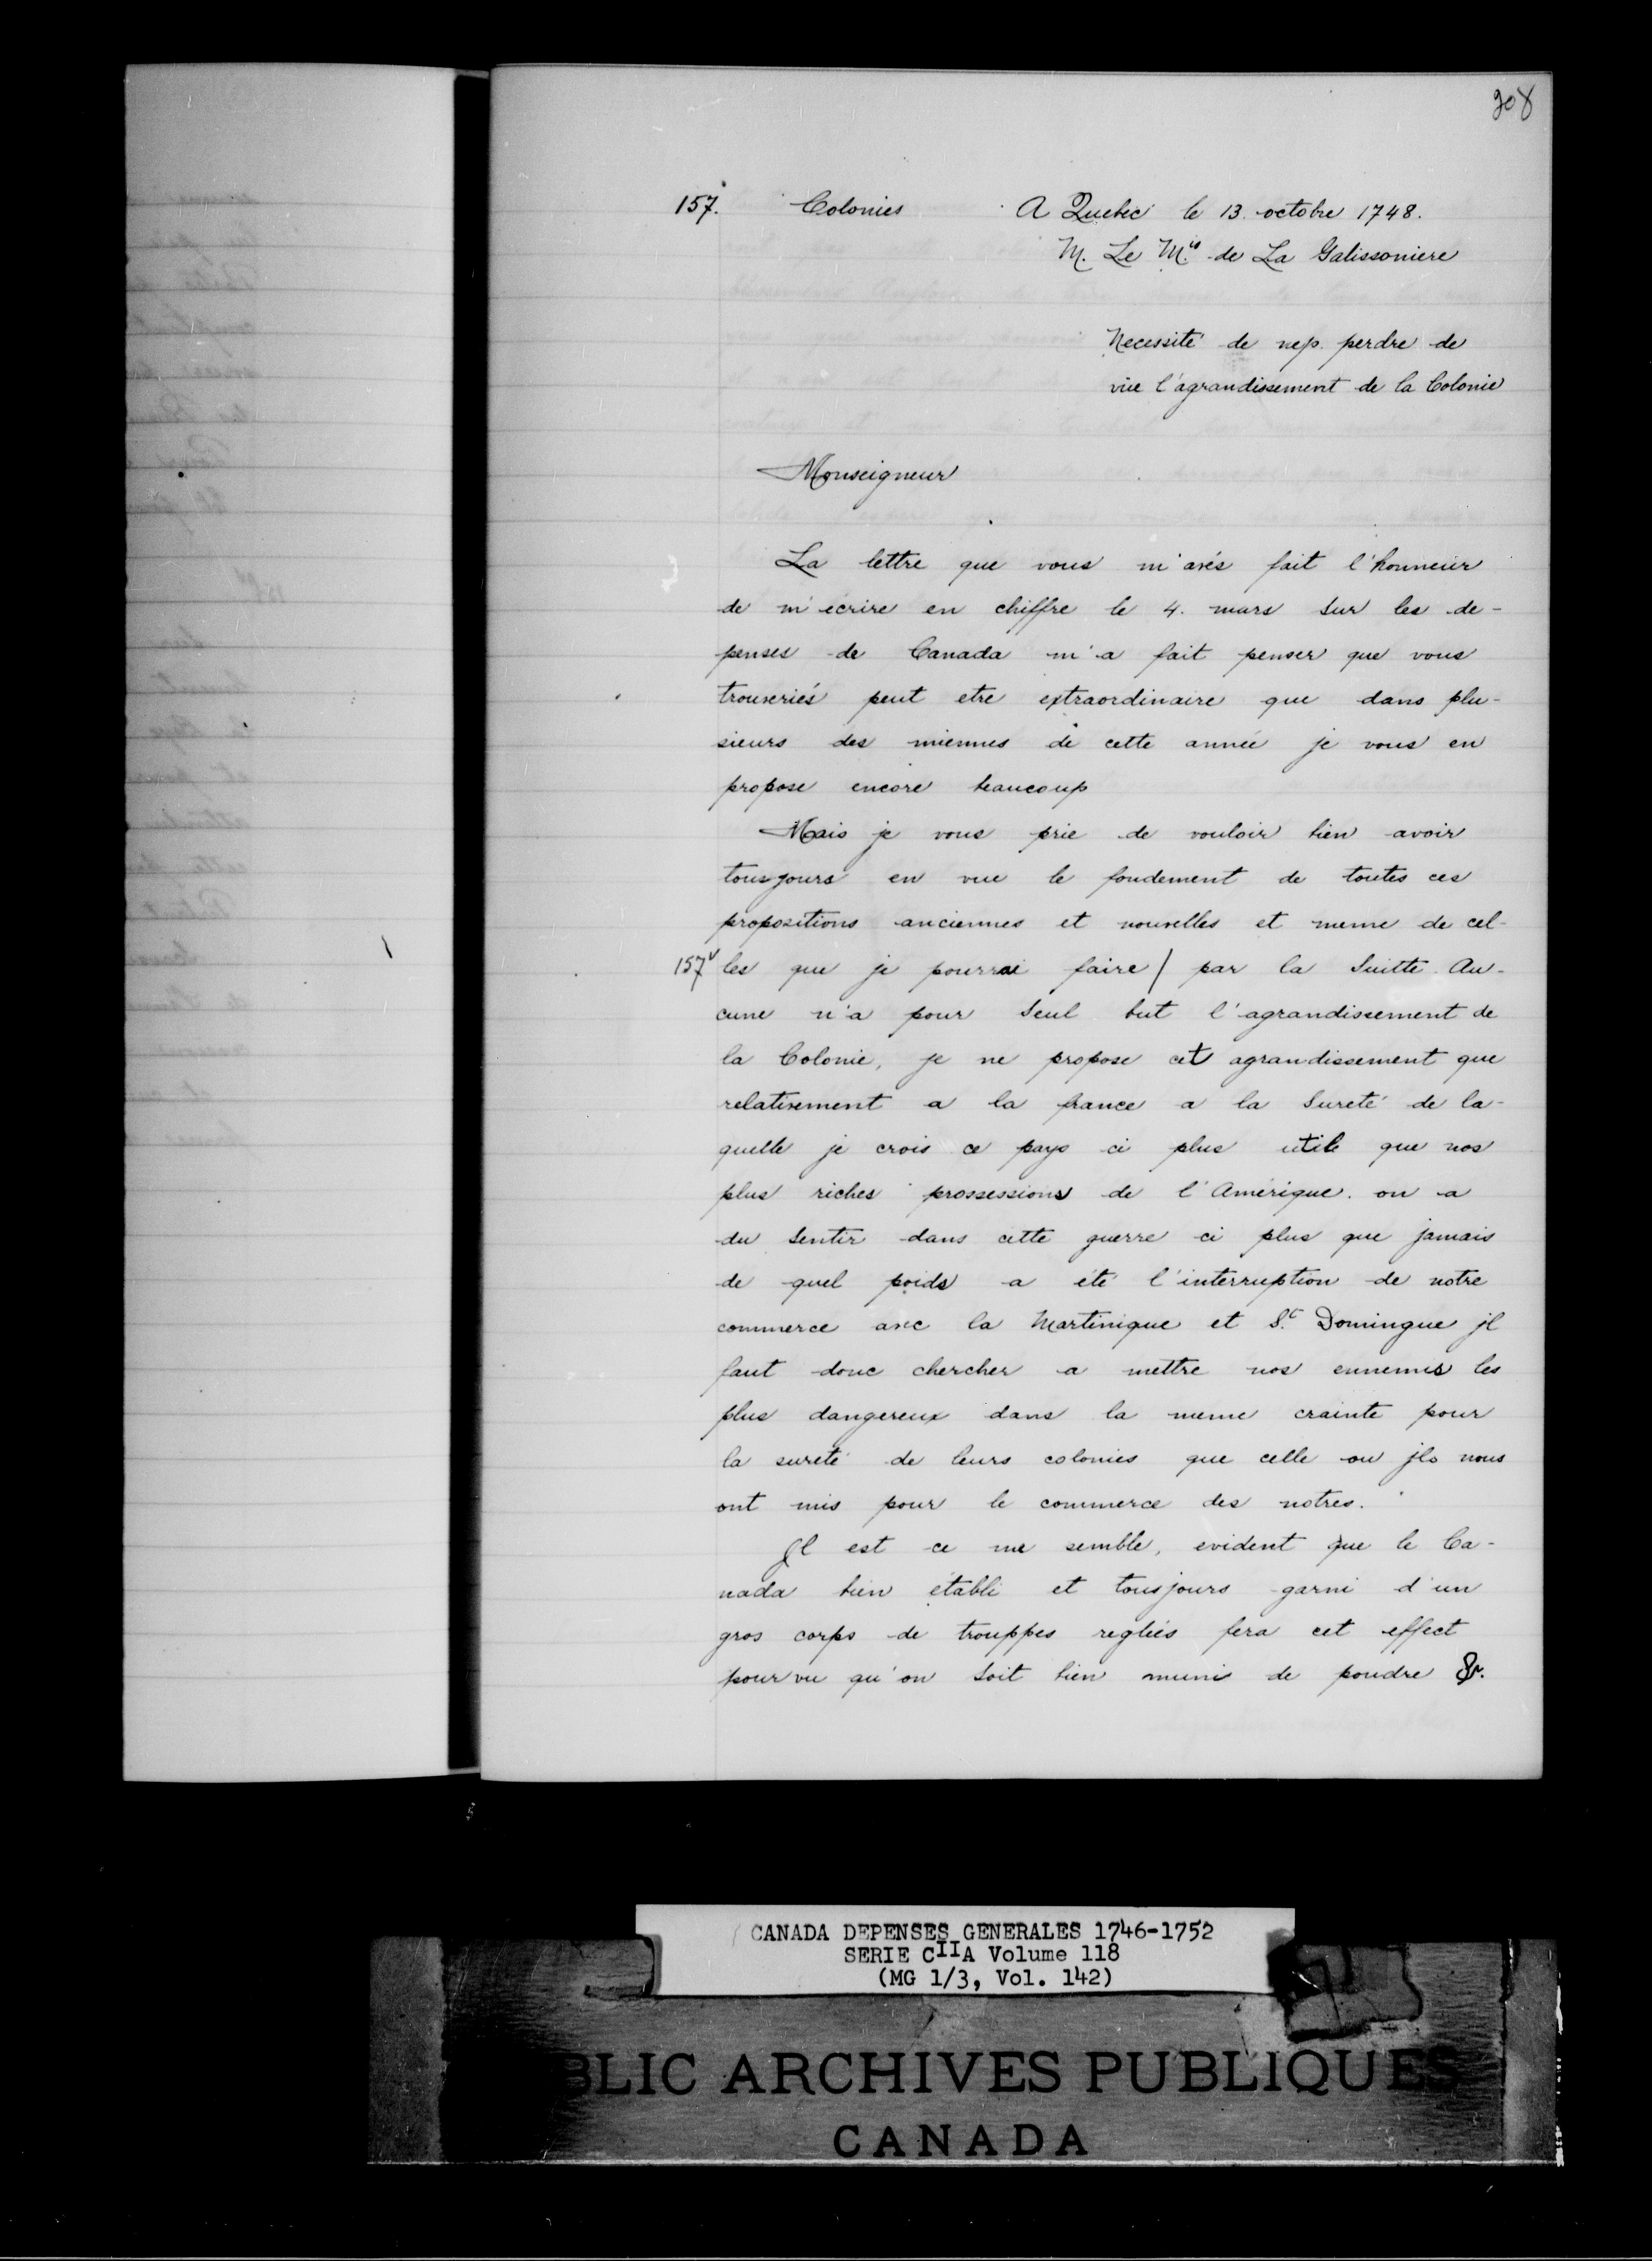 308
157. Colonies A Quebec le 13. octobre 1748.
M. Le M.is de La Galissoniere
Necessité de nep. perdre de
vüe l'agrandissement de la Colonie
Monseigneur
La lettre que vous m'avés fait l'honneur
de m'ecrire en chiffre le 4. mars sur les de-
penses de Canada m'a fait penser que vous
trouveriés peut etre extraordinaire que dans plu-
sieurs des miennes de cette année je vous en
propose encore beaucoup
Mais je vous prie de vouloir bien avoir
tousjours en vue le fondement de toutes ces
propositions anciennes et nouvelles et meme de cel-
157v les que je pourrai faire / par la suitte. Au-
cune n'a pour seul but l'agrandissement de
la Colonie, je ne propose cet agrandissement que
relativement a la france a la sureté de la-
quelle je crois ce pays ci plus utile que nos
plus riches prossessions de l'Amérique. on a
du sentir dans cette guerre ci plus que jamais
de quel poids a été l'interruption de notre
commerce avec la Martinique et St. Domingue jl
faut donc chercher a mettre nos ennemis les
plus dangereux dans la meme crainte pour
la sureté de leurs colonies que celle ou jls nous
ont mis pour le commerce des notres.
Jl est ce me semble, evident que le Ca-
nada bien établi et tousjours garni d'un
gros corps de trouppes regleés fera cet effect
pourvu qu'on soit bien muni de poudre &.
CANADA DEPENSES GENERALES 1746-1752
SERIE CIIA Volume 118
(MG 1/3, Vol. 142)
BLIC ARCHIVES PUBLIQUES
CANADA